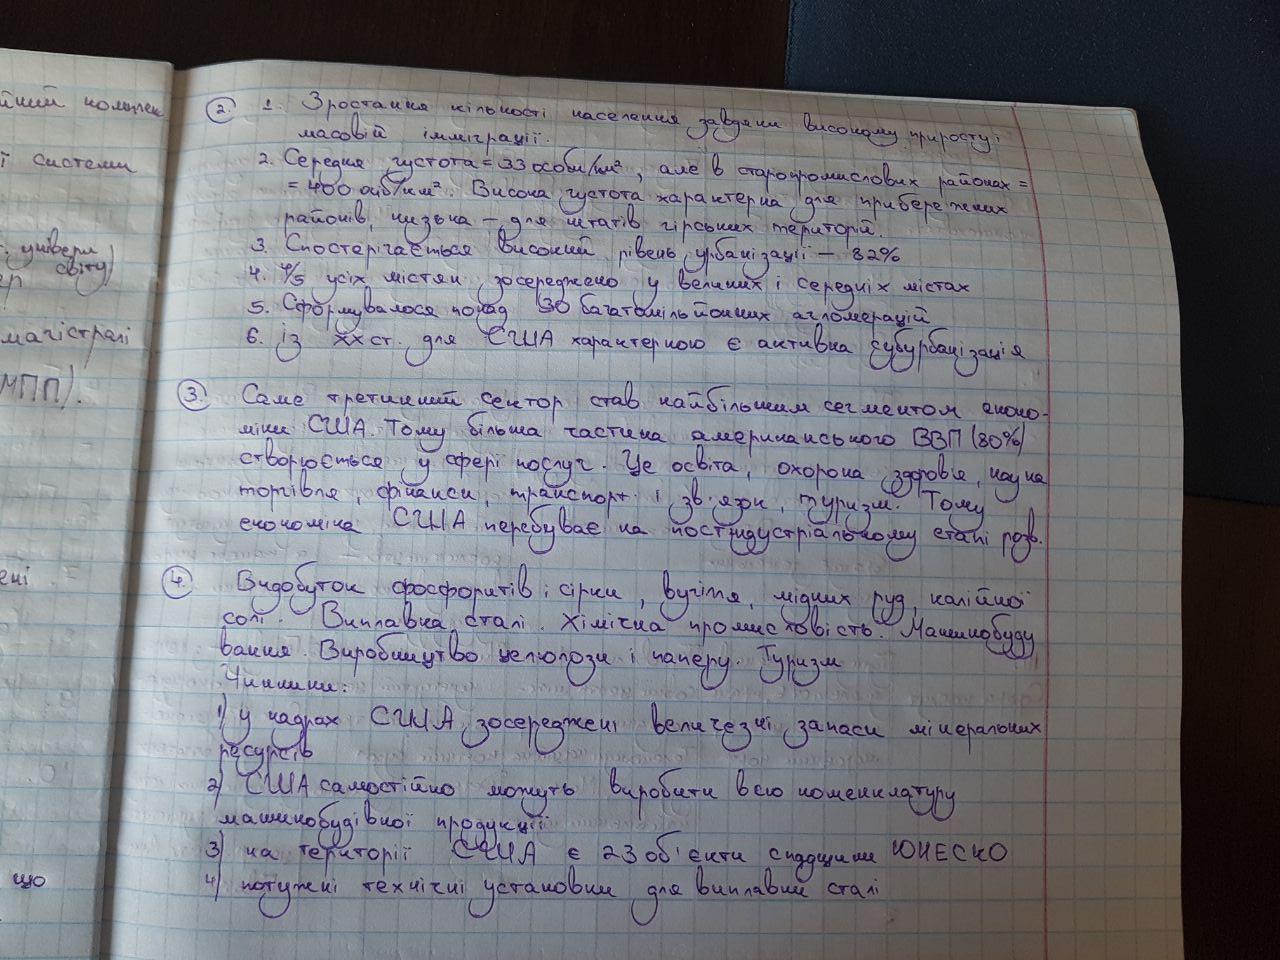 йний комплек
ї системи
універм
світу)
магістралі
МПП).
ені
що
2. 1. Зростання кількості населення завдяки високому приросту і
масовій імміграції.
2. Середня густота = 33 особи/км², але в старопромислових районах =
= 400 осіб/км². Висока густота характерна для прибережних
районів, низька – для штатів гірських територій.
3. Спостерігається високий рівень урбанізації – 82%
4. 4/5 усіх містян зосереджено у великих і середніх містах
5. Сформувалося понад 30 багатомільйонних агломерацій
6. із ХХ ст. для США характерною є активна субурбанізація
3. Саме третинний сектор став найбільшим сегментом еконо-
міки США. Тому більша частина американського ВВП (80%)
створюється у сфері послуг. Це освіта, охорона здоровʼя, наука
торгівля, фінанси, транспорт і зв'язок, туризм. Тому
економіка США перебуває на постіндустріальному етапі розв.
4. Видобуток фосфоритів і сірки, вугілля, мідних руд, калійної
солі. Виплавка сталі. Хімічна промисловість. Машинобуду
вання. Виробництво целюлози і паперу. Туризм
Чинники:
1) у надрах США зосереджені величезні запаси мінеральних
ресурсів
2) США самостійно можуть виробити всю номенклатуру
машинобудівної продукції
3) на території США є 23 об'єкти спадщини ЮНЕСКО
4) потужні технічні установки для виплавки сталі